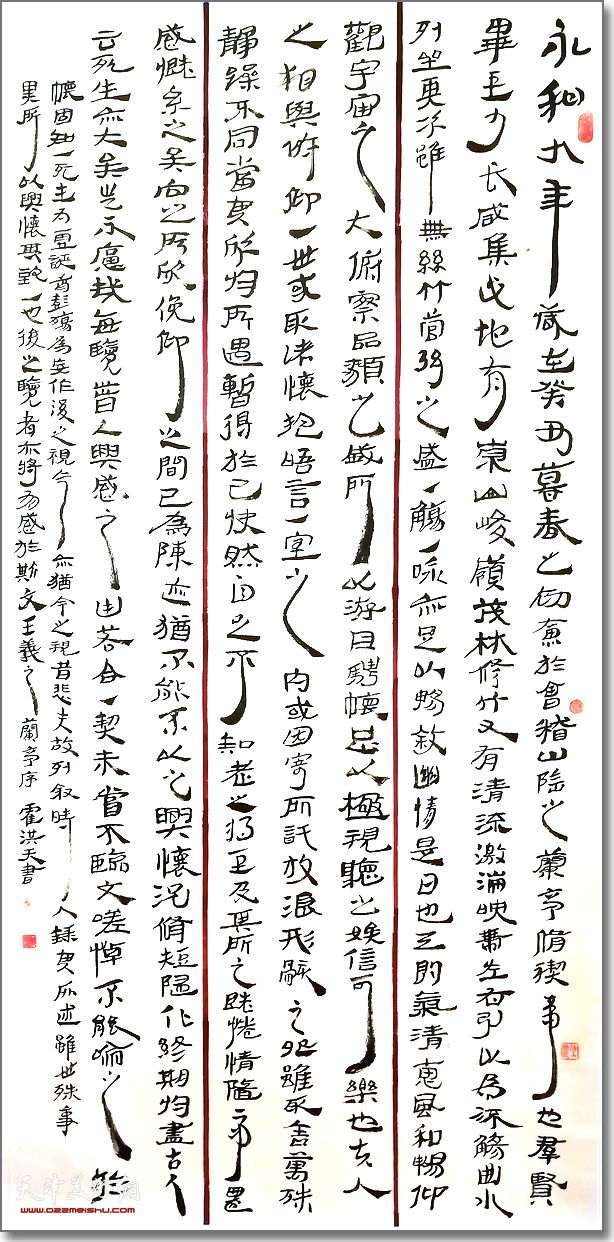 永和九年歲在癸丑暮春之初會於會稽山陰之蘭亭脩禊事也群賢
畢至少長咸集此地有崇山峻嶺茂林修竹又有清流激湍映帶左右引以為流觴曲水
列坐其次雖無絲竹管弦之盛一觴一詠亦足以暢敘幽情是日也天朗氣清惠風和暢仰
觀宇宙之大俯察品類之盛所以游目騁懷足以極視聽之娛信可樂也夫人
之相與俯仰一世或取諸懷抱晤言一室之內或因寄所託放浪形骸之外雖取舍萬殊
靜躁不同當其欣於所遇暫得於己快然自足不知老之將至及其所之既惓情隨事遷
感慨系之矣向之所欣俛仰之間已為陳迹猶不能不以之興懷況脩短隨化終期於盡古人
云死生亦大矣豈不痛哉每覽昔人興感之由若合一契未嘗不臨文嗟悼不能喻之於
懷固知一死生為虛誕齊彭殤為妄作後之視今亦猶今之視昔悲夫故列敘時人錄其所述雖世殊事
異所以興懷其致一也後之覽者亦將有感於斯文王羲之蘭亭序 霍洪天書
天津美術網
www.022meishu.com